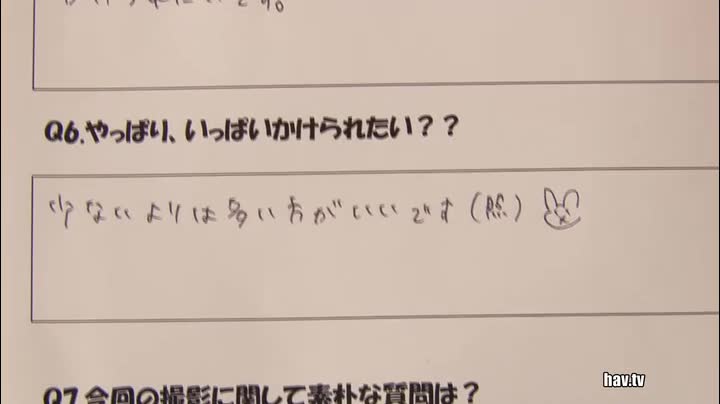 Q6.やっぱり、いっぱいかけられたい？？
少ないよりは多い方がいいです(照)
Q7.今回の撮影に関して素朴な質問は？
hav.tv